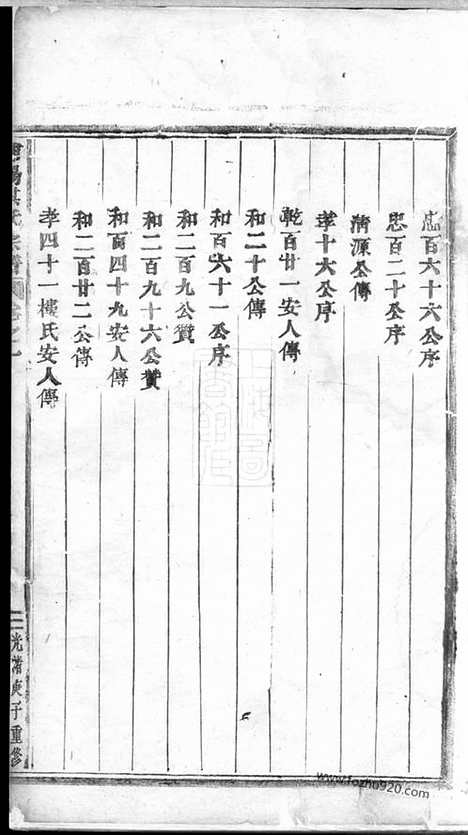 忠百六十六公序
忠百二十公序
清源公傳
孝十六公序
乾百廿一安人傳
和二十公傳
和百六十一公序
和二百九公贊
和二百九十六公贊
和百四十九安人傳
和二百廿二公傳
孝四十一樓氏安人傳
氏宗譜
光緒庚子重修
www.fozhu920.com